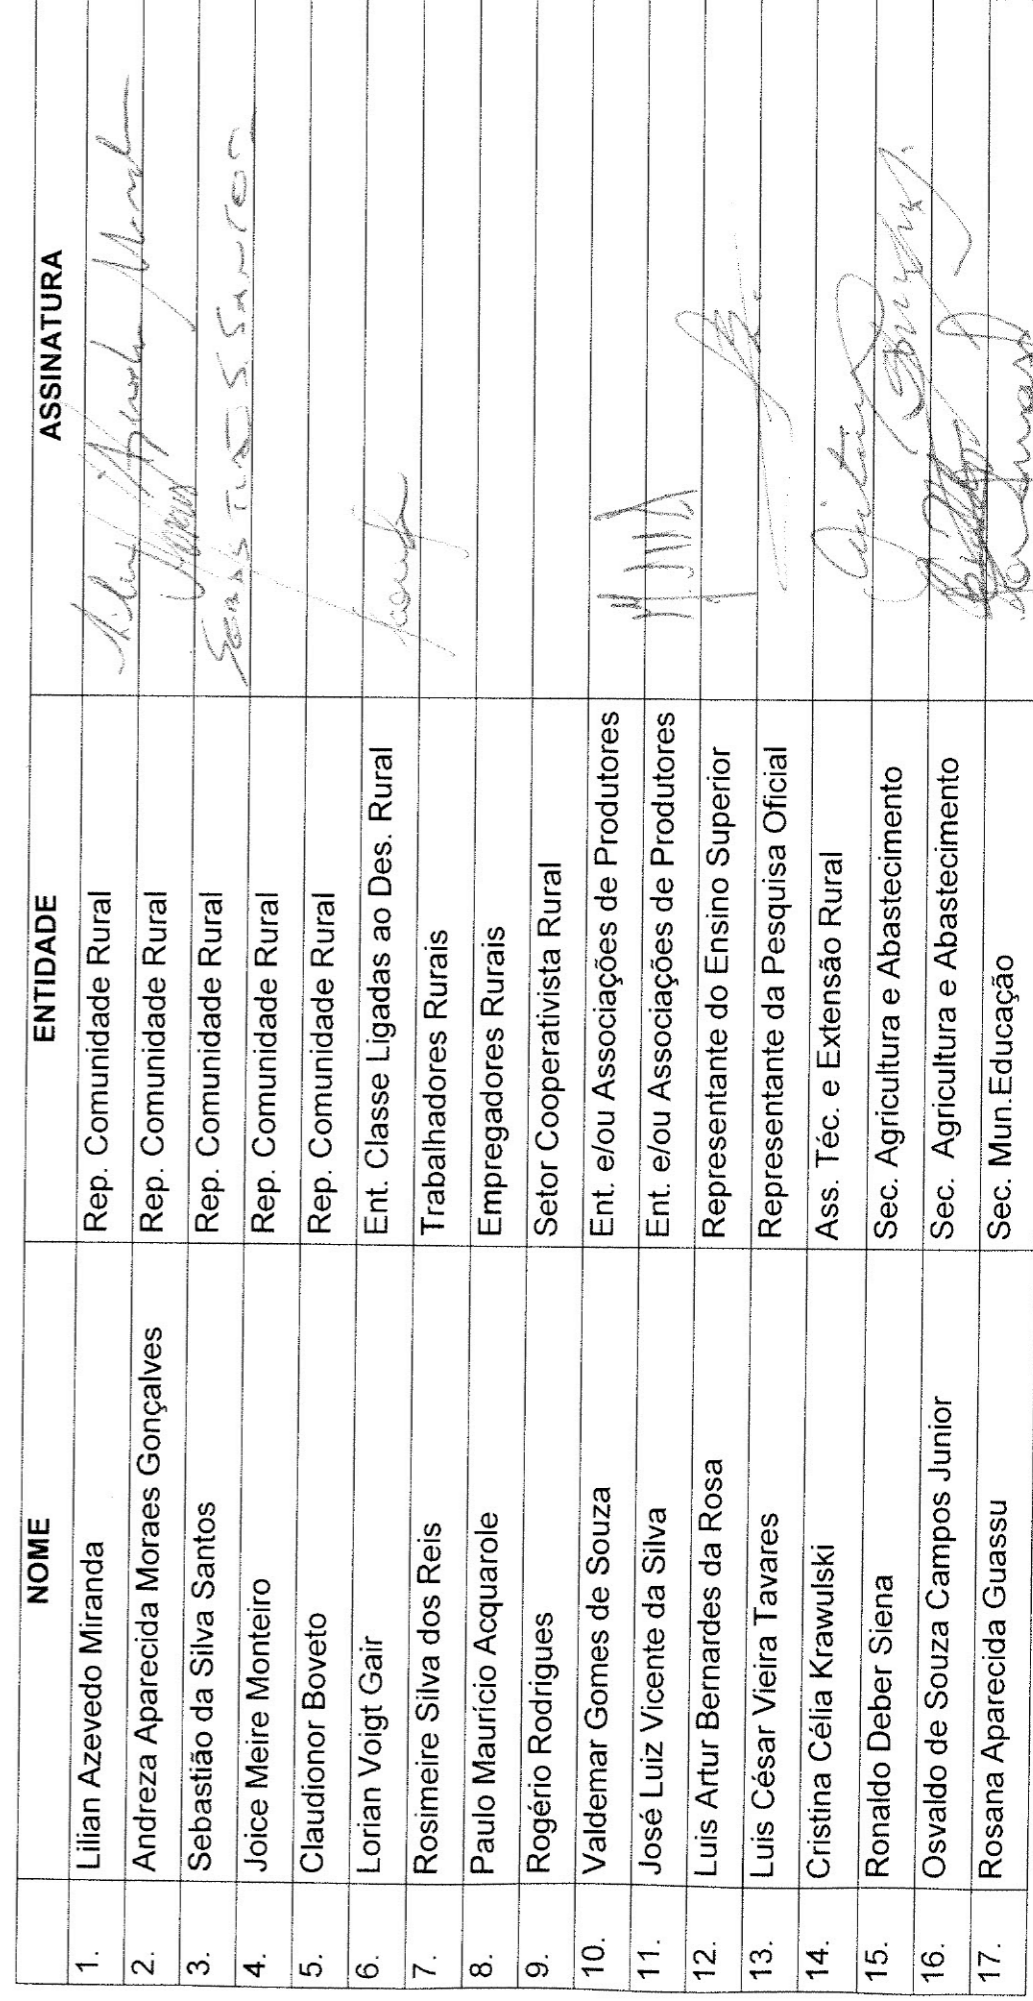 NOME ENTIDADE ASSINATURA
1. Lilian Azevedo Miranda Rep. Comunidade Rural
2. Andreza Aparecida Moraes Gonçalves Rep. Comunidade Rural
3. Sebastião da Silva Santos Rep. Comunidade Rural
4. Joice Meire Monteiro Rep. Comunidade Rural
5. Claudionor Boveto Rep. Comunidade Rural
6. Lorian Voigt Gair Ent. Classe Ligadas ao Des. Rural
7. Rosimeire Silva dos Reis Trabalhadores Rurais
8. Paulo Maurício Acquarole Empregadores Rurais
9. Rogério Rodrigues Setor Cooperativista Rural
10. Valdemar Gomes de Souza Ent. e/ou Associações de Produtores
11. José Luiz Vicente da Silva Ent. e/ou Associações de Produtores
12. Luis Artur Bernardes da Rosa Representante do Ensino Superior
13. Luis César Vieira Tavares Representante da Pesquisa Oficial
14. Cristina Célia Krawulski Ass. Téc. e Extensão Rural
15. Ronaldo Deber Siena Sec. Agricultura e Abastecimento
16. Osvaldo de Souza Campos Junior Sec. Agricultura e Abastecimento
17. Rosana Aparecida Guassu Sec. Mun.Educação